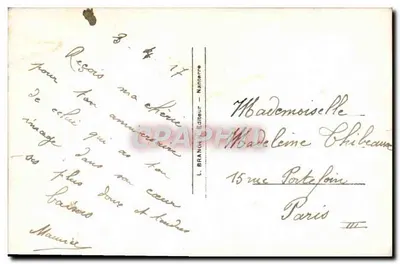 3 17
Reçois ma chérie
pour ton anniversaire
de celui qui as ton
image dans son cœur
ses plus doux et tendres
baisers
Maurice
L. BRANGER Editeur - Nanterre
CPARAMA.COM
Mademoiselle
Madeleine Thibeaux
15 rue Portefoin
Paris
III